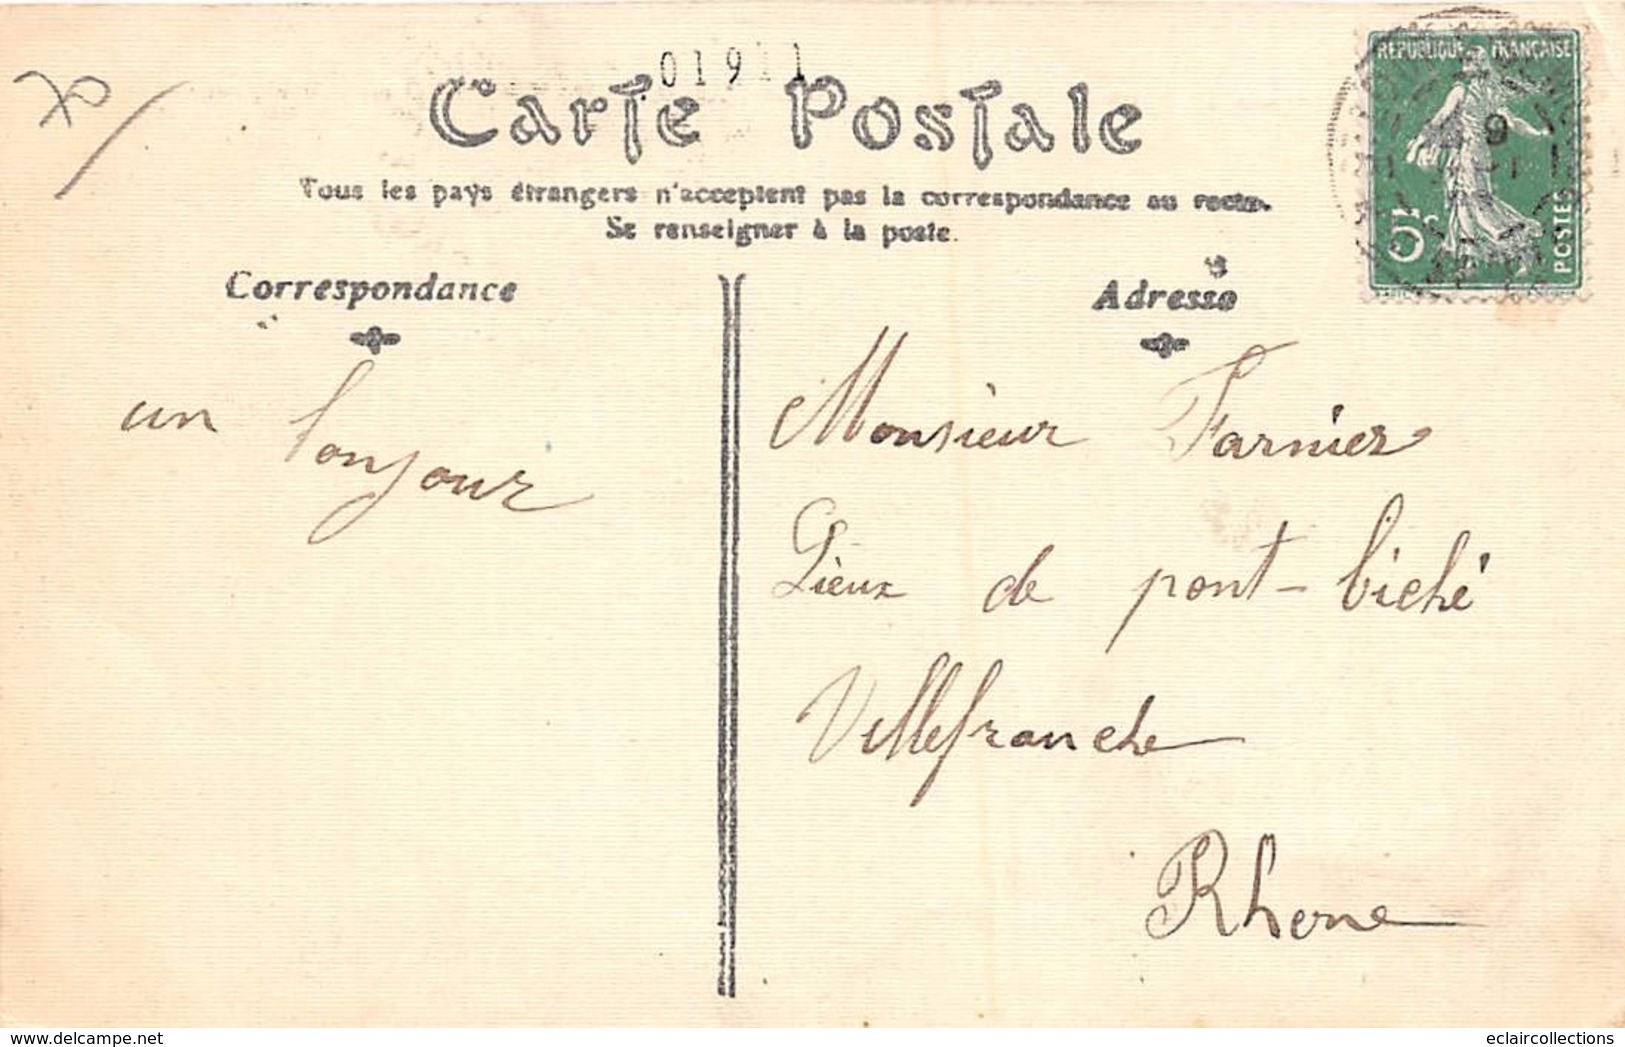 01911
Carte Postale
Tous les pays étrangers n'acceptent pas la correspondance au recto.
Se renseigner à la poste.
REPUBLIQUE FRANÇAISE
5c
POSTES
Correspondance
Adresse
un bonjour
Monsieur Farnier
Lieux de pont-biché
Villefranche
Rhone
eclaircollections